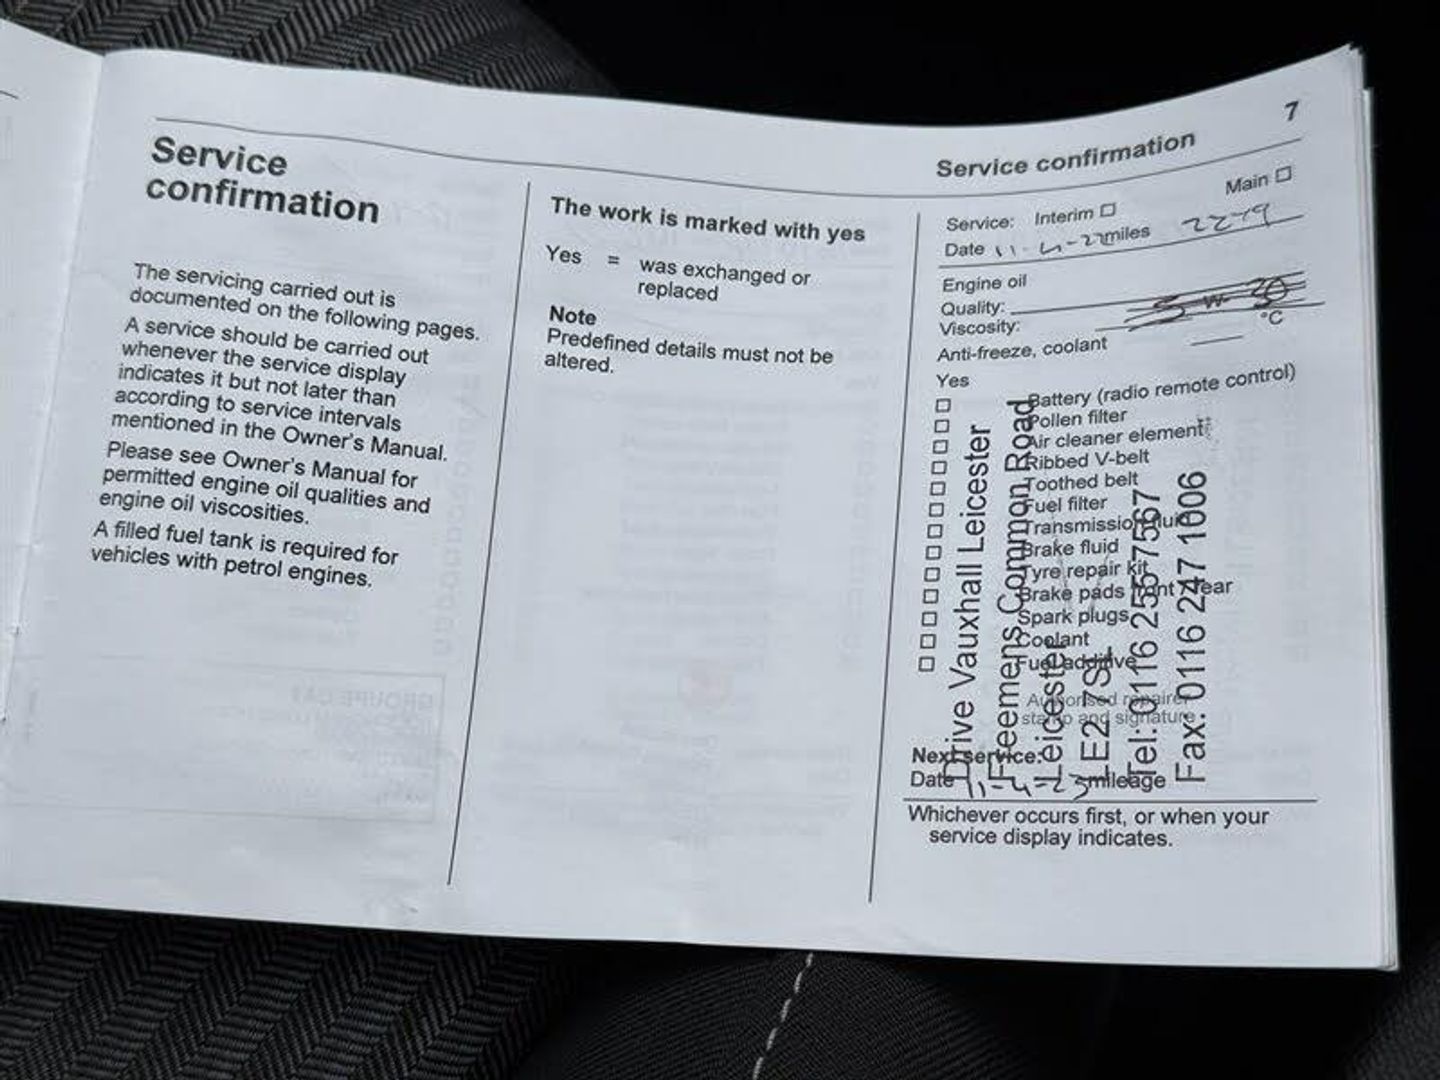 7
Service confirmation
Service
confirmation
The servicing carried out is
documented on the following pages.
A service should be carried out
whenever the service display
indicates it but not later than
according to service intervals
mentioned in the Owner's Manual.
Please see Owner's Manual for
permitted engine oil qualities and
engine oil viscosities.
A filled fuel tank is required for
vehicles with petrol engines.
The work is marked with yes
Yes = was exchanged or
replaced
Note
Predefined details must not be
altered.
Service: Interim ☐ Main ☐
Date 11-4-22 miles 2279
Engine oil
Quality:
Viscosity:
°C
Anti-freeze, coolant
Yes
☐ Battery (radio remote control)
☐ Pollen filter
☐ Air cleaner element
☐ Ribbed V-belt
☐ Toothed belt
☐ Fuel filter
☐ Transmission fluid
☐ Brake fluid
☐ Tyre repair kit
☐ Brake pads front rear
☐ Spark plugs
☐ Coolant
☐ Fuel additive
Authorised repairer
stamp and signature
Drive Vauxhall Leicester
Freemens Common Road
Leicester
LE2 7SL
Tel: 0116 255 7567
Fax: 0116 247 1006
Next service:
Date 11-4-23 mileage
Whichever occurs first, or when your
service display indicates.